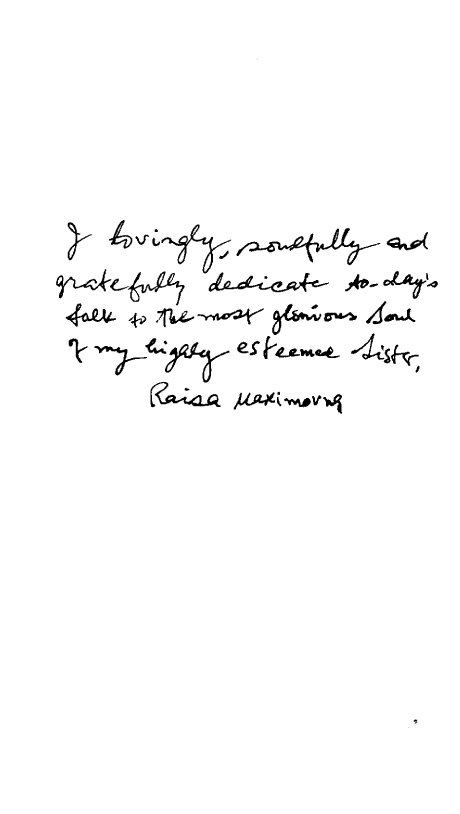 I lovingly, soulfully and
gratefully dedicate to-day's
talk to the most glorious soul
of my highly esteemed Sister,
Raisa Maximovna